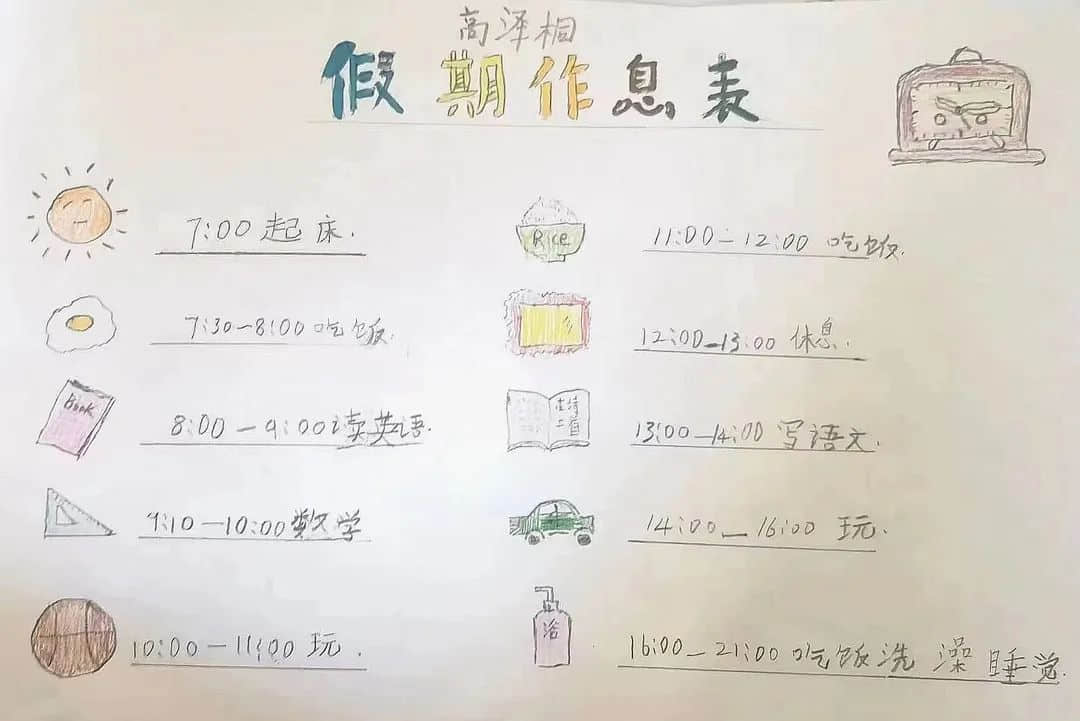 高泽桐
假期作息表
7:00 起床.
7:30—8:00 吃饭.
Book
8:00—9:00 读英语.
9:10—10:00 数学
10:00—11:00 玩.
Rice
11:00—12:00 吃饭.
12:00—13:00 休息.
13:00—14:00 写语文.
14:00—16:00 玩.
浴
16:00—21:00 吃饭洗澡睡觉.